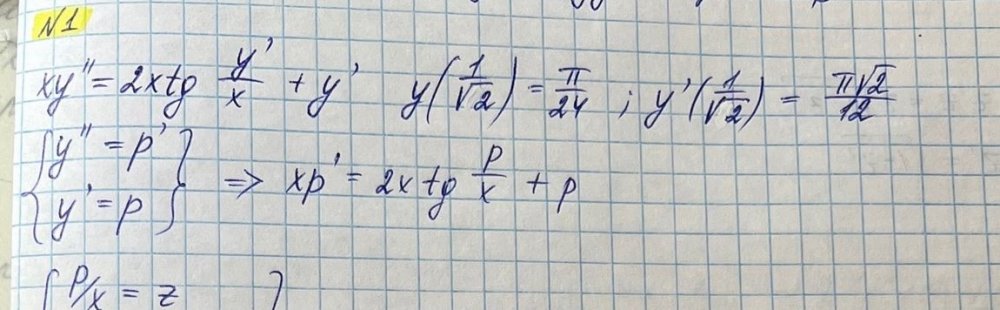 N1
xy'' = 2x tg y'/x + y'   y(1/√2) = π/24 ; y'(1/√2) = π√2/12
{y'' = p'
y' = p} => xp' = 2x tg p/x + p
{p/x = z }